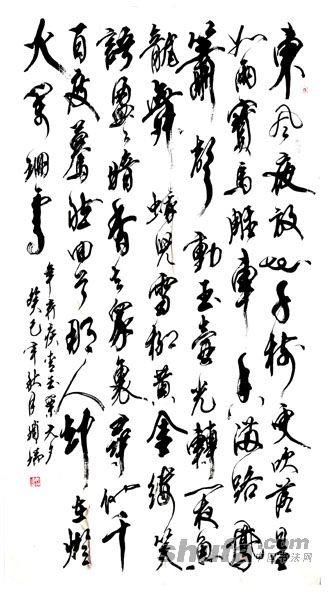 東风夜放花千樹更吹落星
如雨寶馬雕車香滿路鳳
簫聲動玉壺光轉一夜魚
龍舞蛾兒雪柳黃金縷笑
語盈々暗香去眾裏尋他千
百度驀然回首那人卻在燈
火闌珊處
辛弃疾青玉案元夕
癸巳年秋月